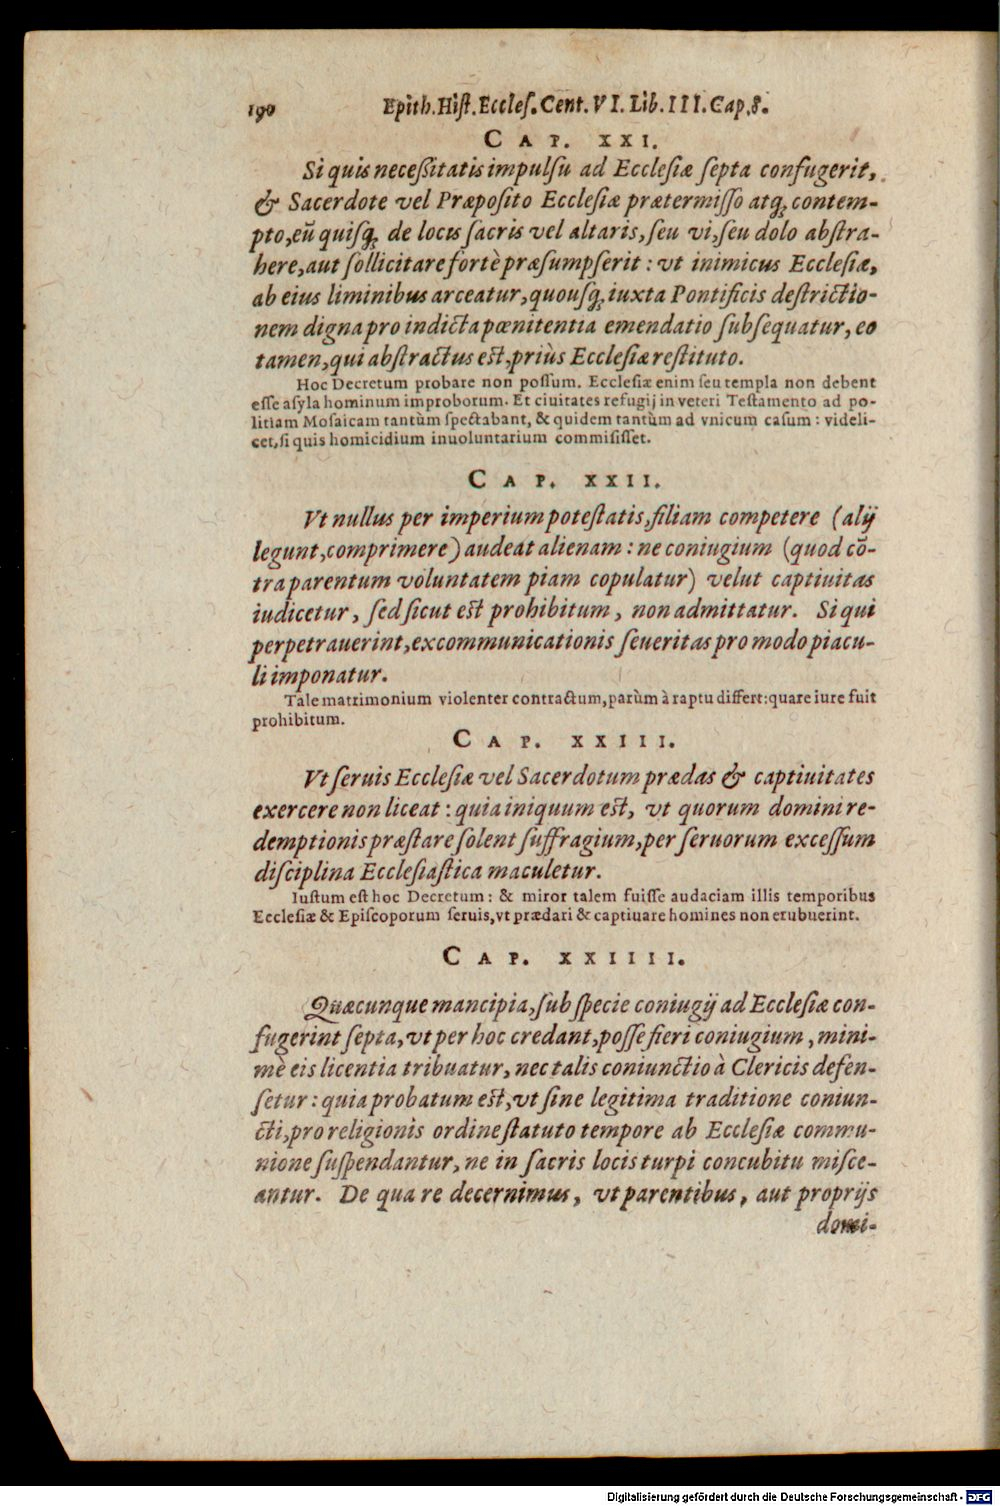 190 Epith. Hiſt. Eccleſ. Cent. VI. Lib. III. Cap. 8.
CAP. XXI.
Si quis neceſsitatis impulſu ad Eccleſiæ ſepta confugerit,
& Sacerdote vel Præpoſito Eccleſiæ prætermiſſo atq; contem-
pto, eũ quiſq; de locis ſacris vel altaris, ſeu vi, ſeu dolo abſtra-
here, aut ſollicitare fortè præſumpſerit : vt inimicus Eccleſiæ,
ab eius liminibus arceatur, quouſq; iuxta Pontificis deſtrictio-
nem digna pro indicta pœnitentia emendatio ſubſequatur, eo
tamen, qui abſtractus eſt, priùs Eccleſiæ reſtituto.
Hoc Decretum probare non poſſum. Eccleſiæ enim ſeu templa non debent
eſſe aſyla hominum improborum. Et ciuitates refugij in veteri Teſtamento ad po-
litiam Moſaicam tantùm ſpectabant, & quidem tantùm ad vnicum caſum : videli-
cet, ſi quis homicidium inuoluntarium commiſiſſet.
CAP. XXII.
Vt nullus per imperium poteſtatis, filiam competere (alij
legunt, comprimere) audeat alienam : ne coniugium (quod cõ-
tra parentum voluntatem piam copulatur) velut captiuitas
iudicetur, ſed ſicut eſt prohibitum, non admittatur. Si qui
perpetrauerint, excommunicationis ſeueritas pro modo piacu-
li imponatur.
Tale matrimonium violenter contractum, parùm à raptu differt: quare iure fuit
prohibitum.
CAP. XXIII.
Vt ſeruis Eccleſiæ vel Sacerdotum prædas & captiuitates
exercere non liceat : quia iniquum eſt, vt quorum domini re-
demptionis præſtare ſolent ſuffragium, per ſeruorum exceſſum
diſciplina Eccleſiaſtica maculetur.
Iuſtum eſt hoc Decretum : & miror talem fuiſſe audaciam illis temporibus
Eccleſiæ & Epiſcoporum ſeruis, vt prædari & captiuare homines non erubuerint.
CAP. XXIIII.
Quæcunque mancipia, ſub ſpecie coniugij ad Eccleſiæ con-
fugerint ſepta, vt per hoc credant, poſſe fieri coniugium, mini-
mè eis licentia tribuatur, nec talis coniunctio à Clericis defen-
ſetur : quia probatum eſt, vt ſine legitima traditione coniun-
cti, pro religionis ordine ſtatuto tempore ab Eccleſiæ commu-
nione ſuſpendantur, ne in ſacris locis turpi concubitu miſce-
antur. De qua re decernimus, vt parentibus, aut proprijs
domi-
Digitalisierung gefördert durch die Deutsche Forschungsgemeinschaft - DFG